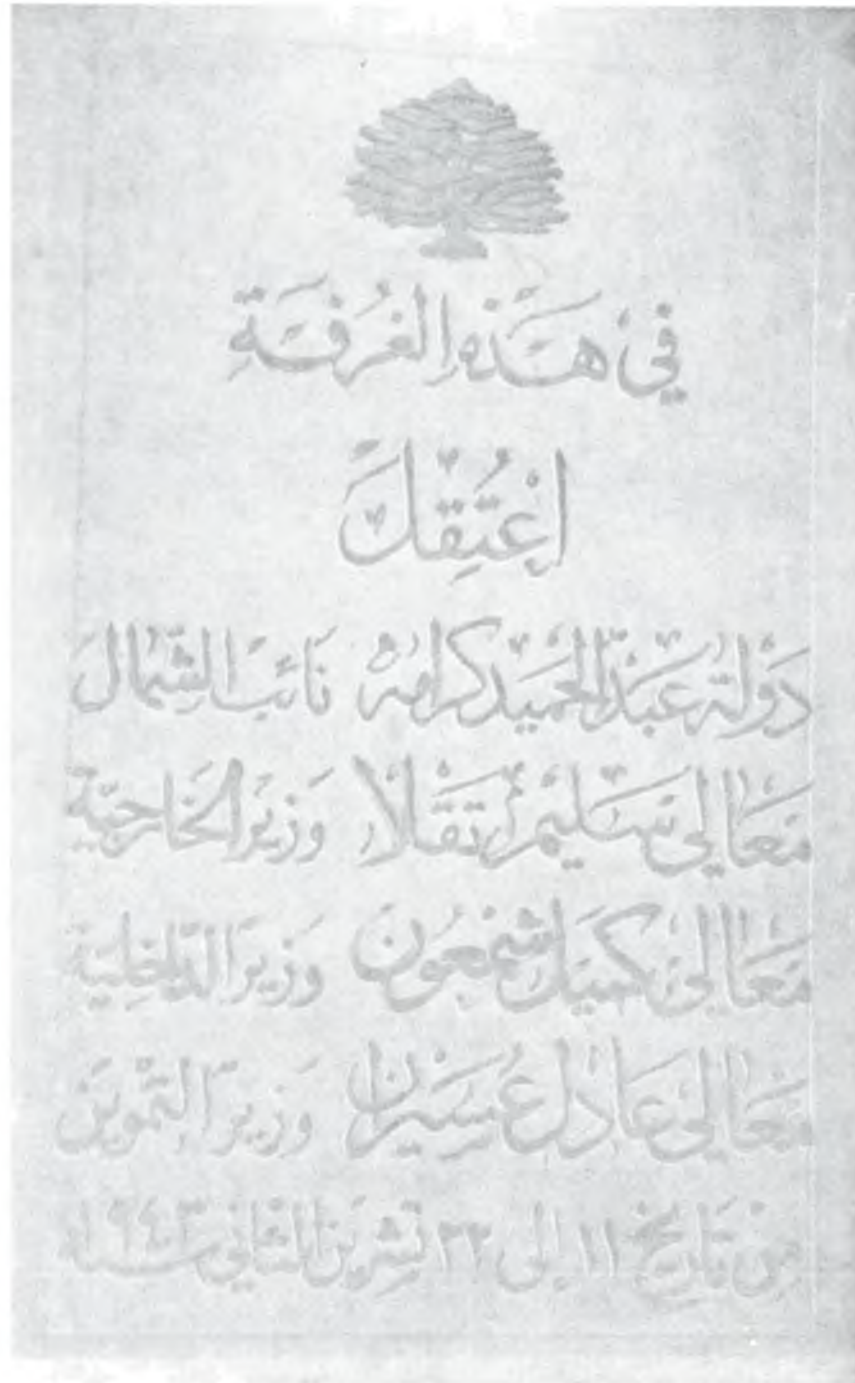 في هَذِهِ الغُرفَةِ
اعْتُقِلَ
دَولة عَبد الحَميد كرامه نَائب الشِّمَال
مَعَالي سَليم تَقلا وَزير الخَارجيَّة
مَعَالي كميل شمعُون وَزير الدَّاخليَّة
مَعَالي عَادل عُسَيران وَزير التَّموين
من تَاريخ ١١ إلى ٢٢ تشرين الثاني سَنة